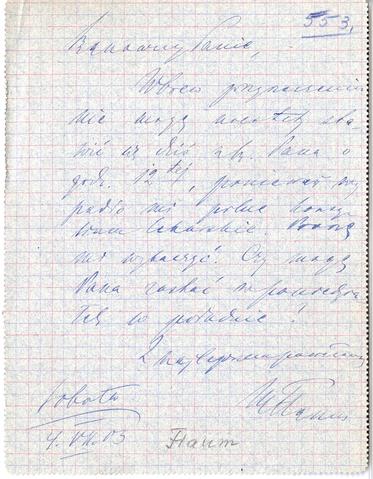 553.
Szanowny Panie,
Wbrew przyrzeczeniu
nie mogę niestety sta-
wić się dziś u Pana o
godz. 12 tej, ponieważ wy-
padło mi pilne konsy-
lium lekarskie. Proszę
mi wybaczyć. Czy mogę
Pana zastać w poniedzia-
łek w południe?
Z najlepszem pozdrowieniem
sobota
4. VII. 03
Flaum